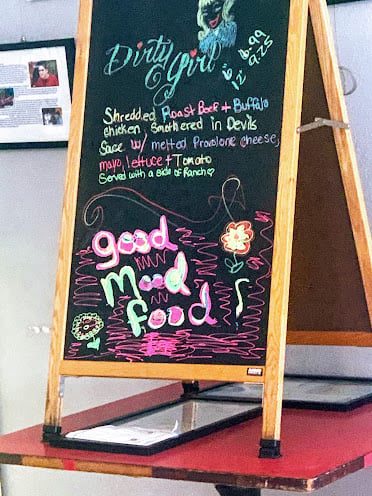 Dirty Girl
6" 6.99
12" 9.25
Shredded Roast Beef + Buffalo
chicken, Smothered in Devils
Sace w/ melted Provolone cheese,
mayo, lettuce + Tomato
Served with a side of Ranch
good
Mood
food